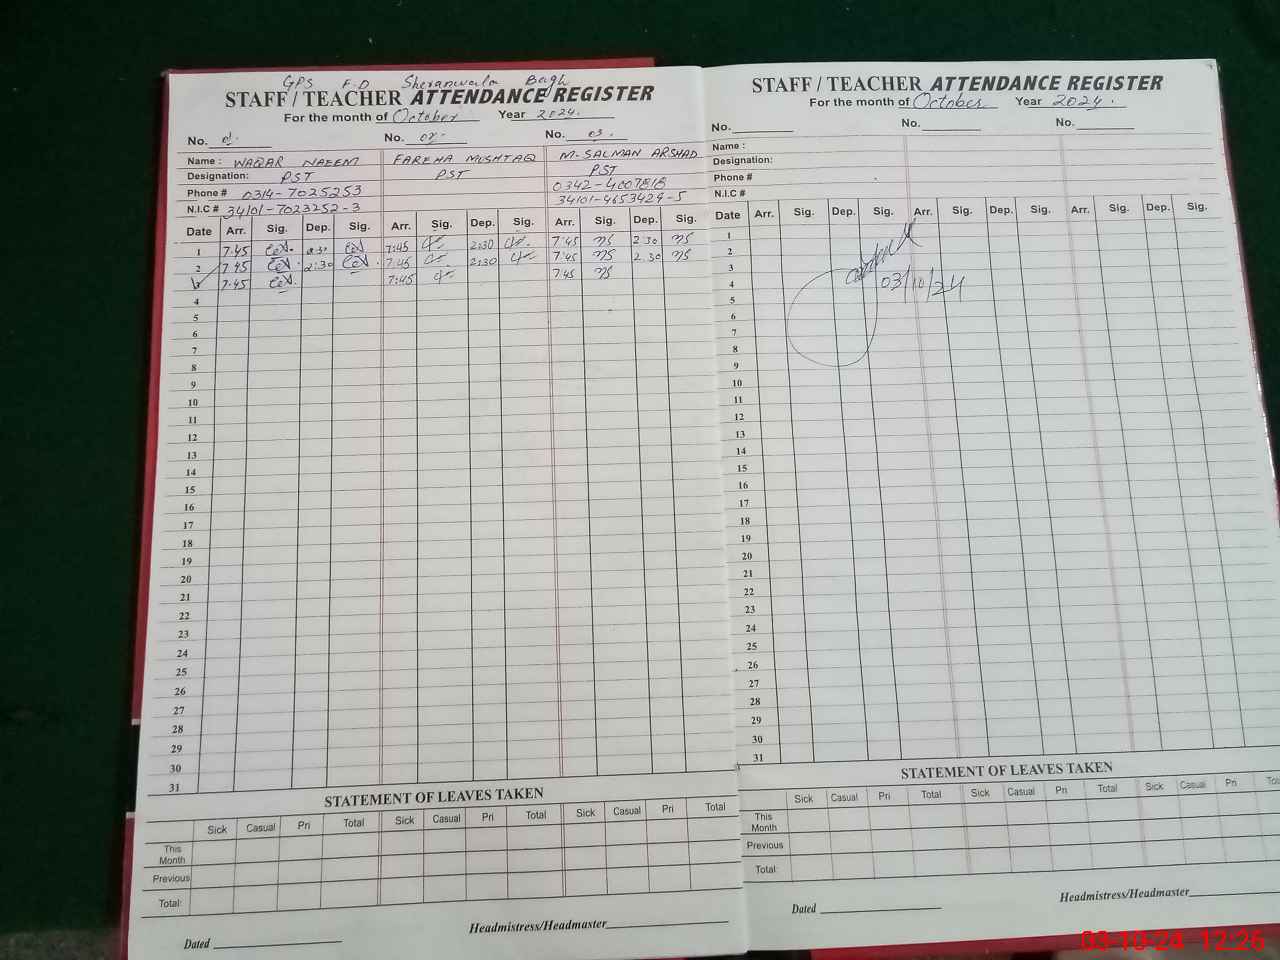 GPS F.D Sheranwala Bagh
STAFF / TEACHER ATTENDANCE REGISTER
For the month of October Year 2024.
No. 01. No. 02. No. 03.
Name : WAQAR NAEEM FAREHA MUSHTAQ M. SALMAN ARSHAD
Designation: PST PST PST
Phone # 0314-7025253 0342-4007818
N.I.C # 34101-7023252-3 34101-4653429-5
Date Arr. Sig. Dep. Sig. Arr. Sig. Dep. Sig. Arr. Sig. Dep. Sig.
1 7.45 2:30 7:45 2:30 7:45 2.30
2 7.45 2:30 7:45 2:30 7.45 2.30
7.45 7:45 7.45
4
5
6
7
8
9
10
11
12
13
14
15
16
17
18
19
20
21
22
23
24
25
26
27
28
29
30
31
STATEMENT OF LEAVES TAKEN
Sick Casual Pri Total Sick Casual Pri Total Sick Casual Pri Total
This Month
Previous
Total:
Headmistress/Headmaster
Dated
STAFF / TEACHER ATTENDANCE REGISTER
For the month of October Year 2024.
No. No. No.
Name :
Designation:
Phone #
N.I.C #
Date Arr. Sig. Dep. Sig. Arr. Sig. Dep. Sig. Arr. Sig. Dep. Sig.
1
2
3
4 03/10/24
5
6
7
8
9
10
11
12
13
14
15
16
17
18
19
20
21
22
23
24
25
26
27
28
29
30
31
STATEMENT OF LEAVES TAKEN
Sick Casual Pri Total Sick Casual Pri Total Sick Casual Pri
This Month
Previous
Total:
Headmistress/Headmaster
Dated
03-10-24 12:26